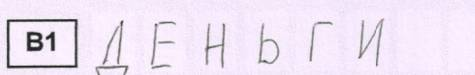 В1 ДЕНЬГИ